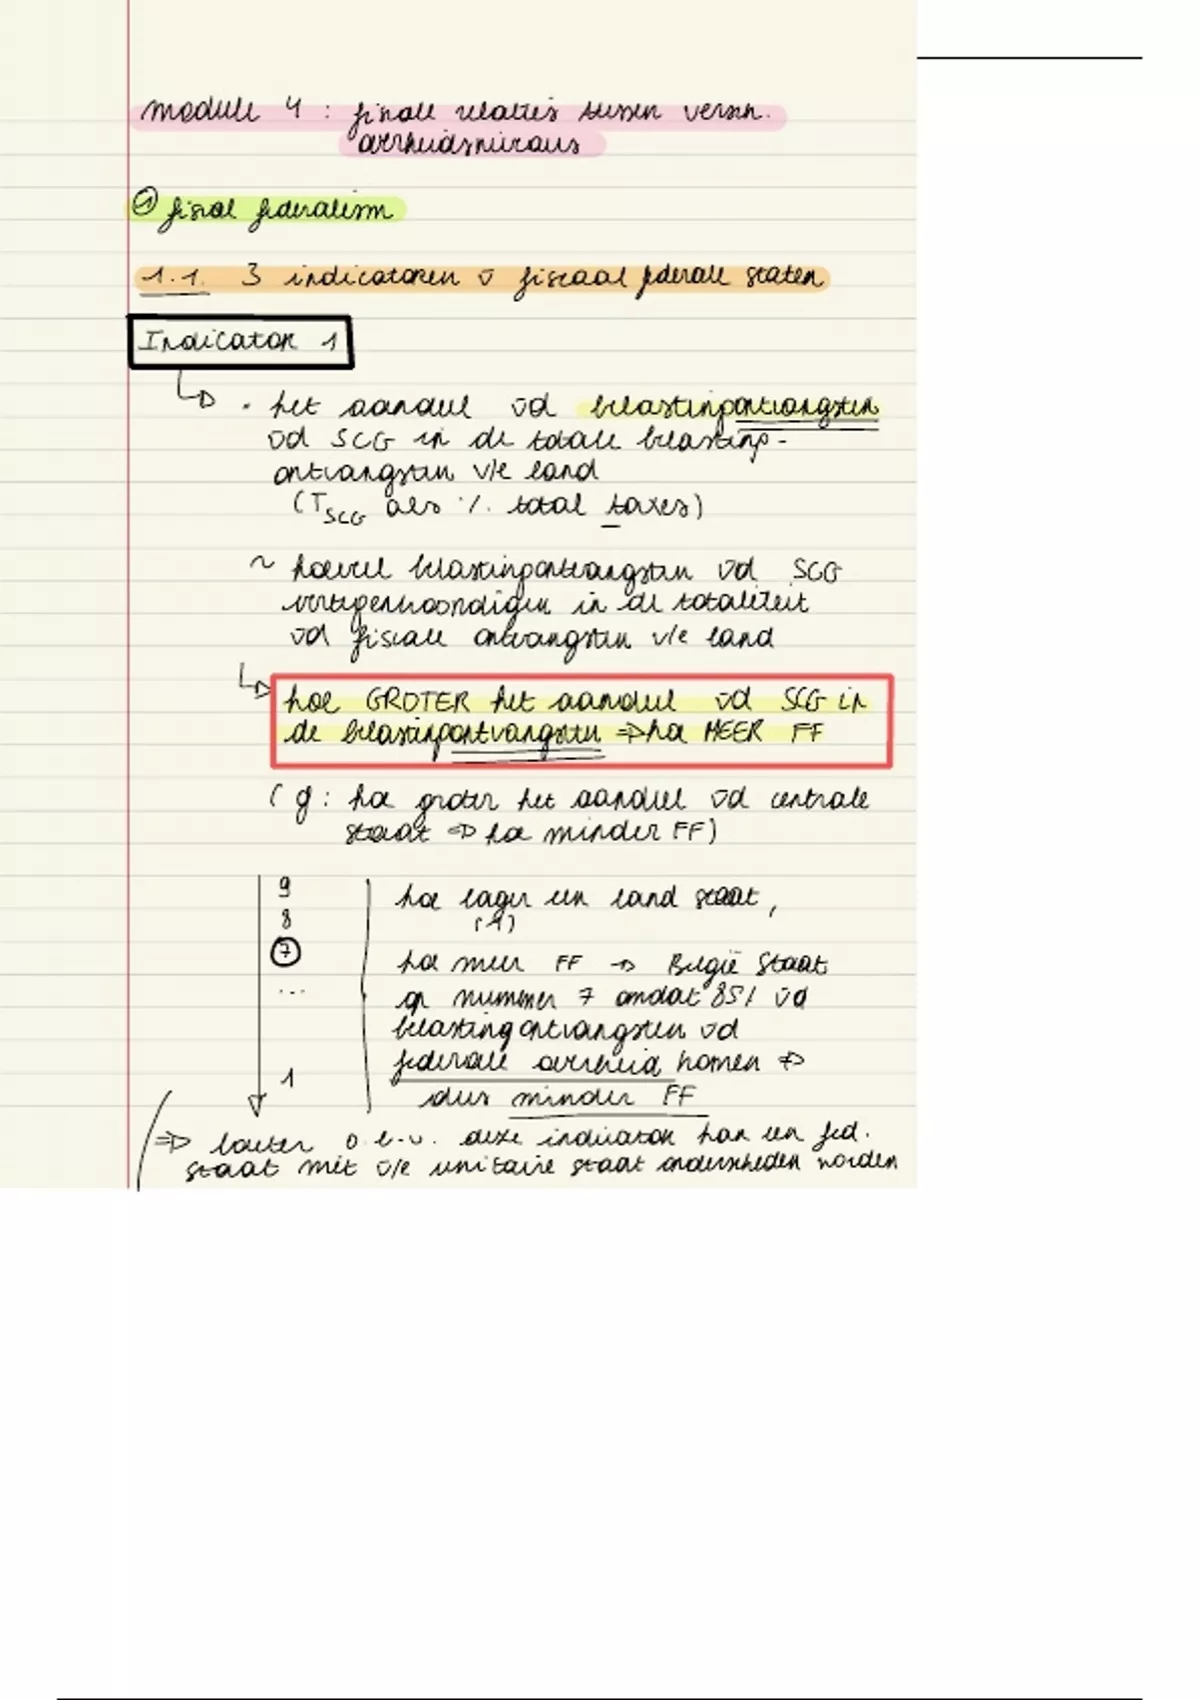 module 4 : fiscale relaties tussen versch.
overheidsniveaus
① fiscal federalism
1.1. 3 indicatoren v fiscaal federale staten
Indicator 1
↳ • het aandeel vd belastingontvangsten
vd SCG in de totale belasting-
ontvangsten v/e land
(T SCG als % total taxes)
~ hoeveel belastingontvangsten vd SCG
vertegenwoordigen in de totaliteit
vd fiscale ontvangsten v/e land
↳ hoe GROTER het aandeel vd SCG in
de belastingontvangsten ⇒ hoe MEER FF
( g : hoe groter het aandeel vd centrale
staat ⇒ hoe minder FF)
9
8
7
...
1
hoe lager een land staat,
(1)
hoe meer FF → België staat
op nummer 7 omdat 85% vd
belastingontvangsten vd
federale overheid komen ⇒
dus minder FF
⇒ louter o.b.v. deze indicator kan een fed.
staat niet v/e unitaire staat onderscheiden worden